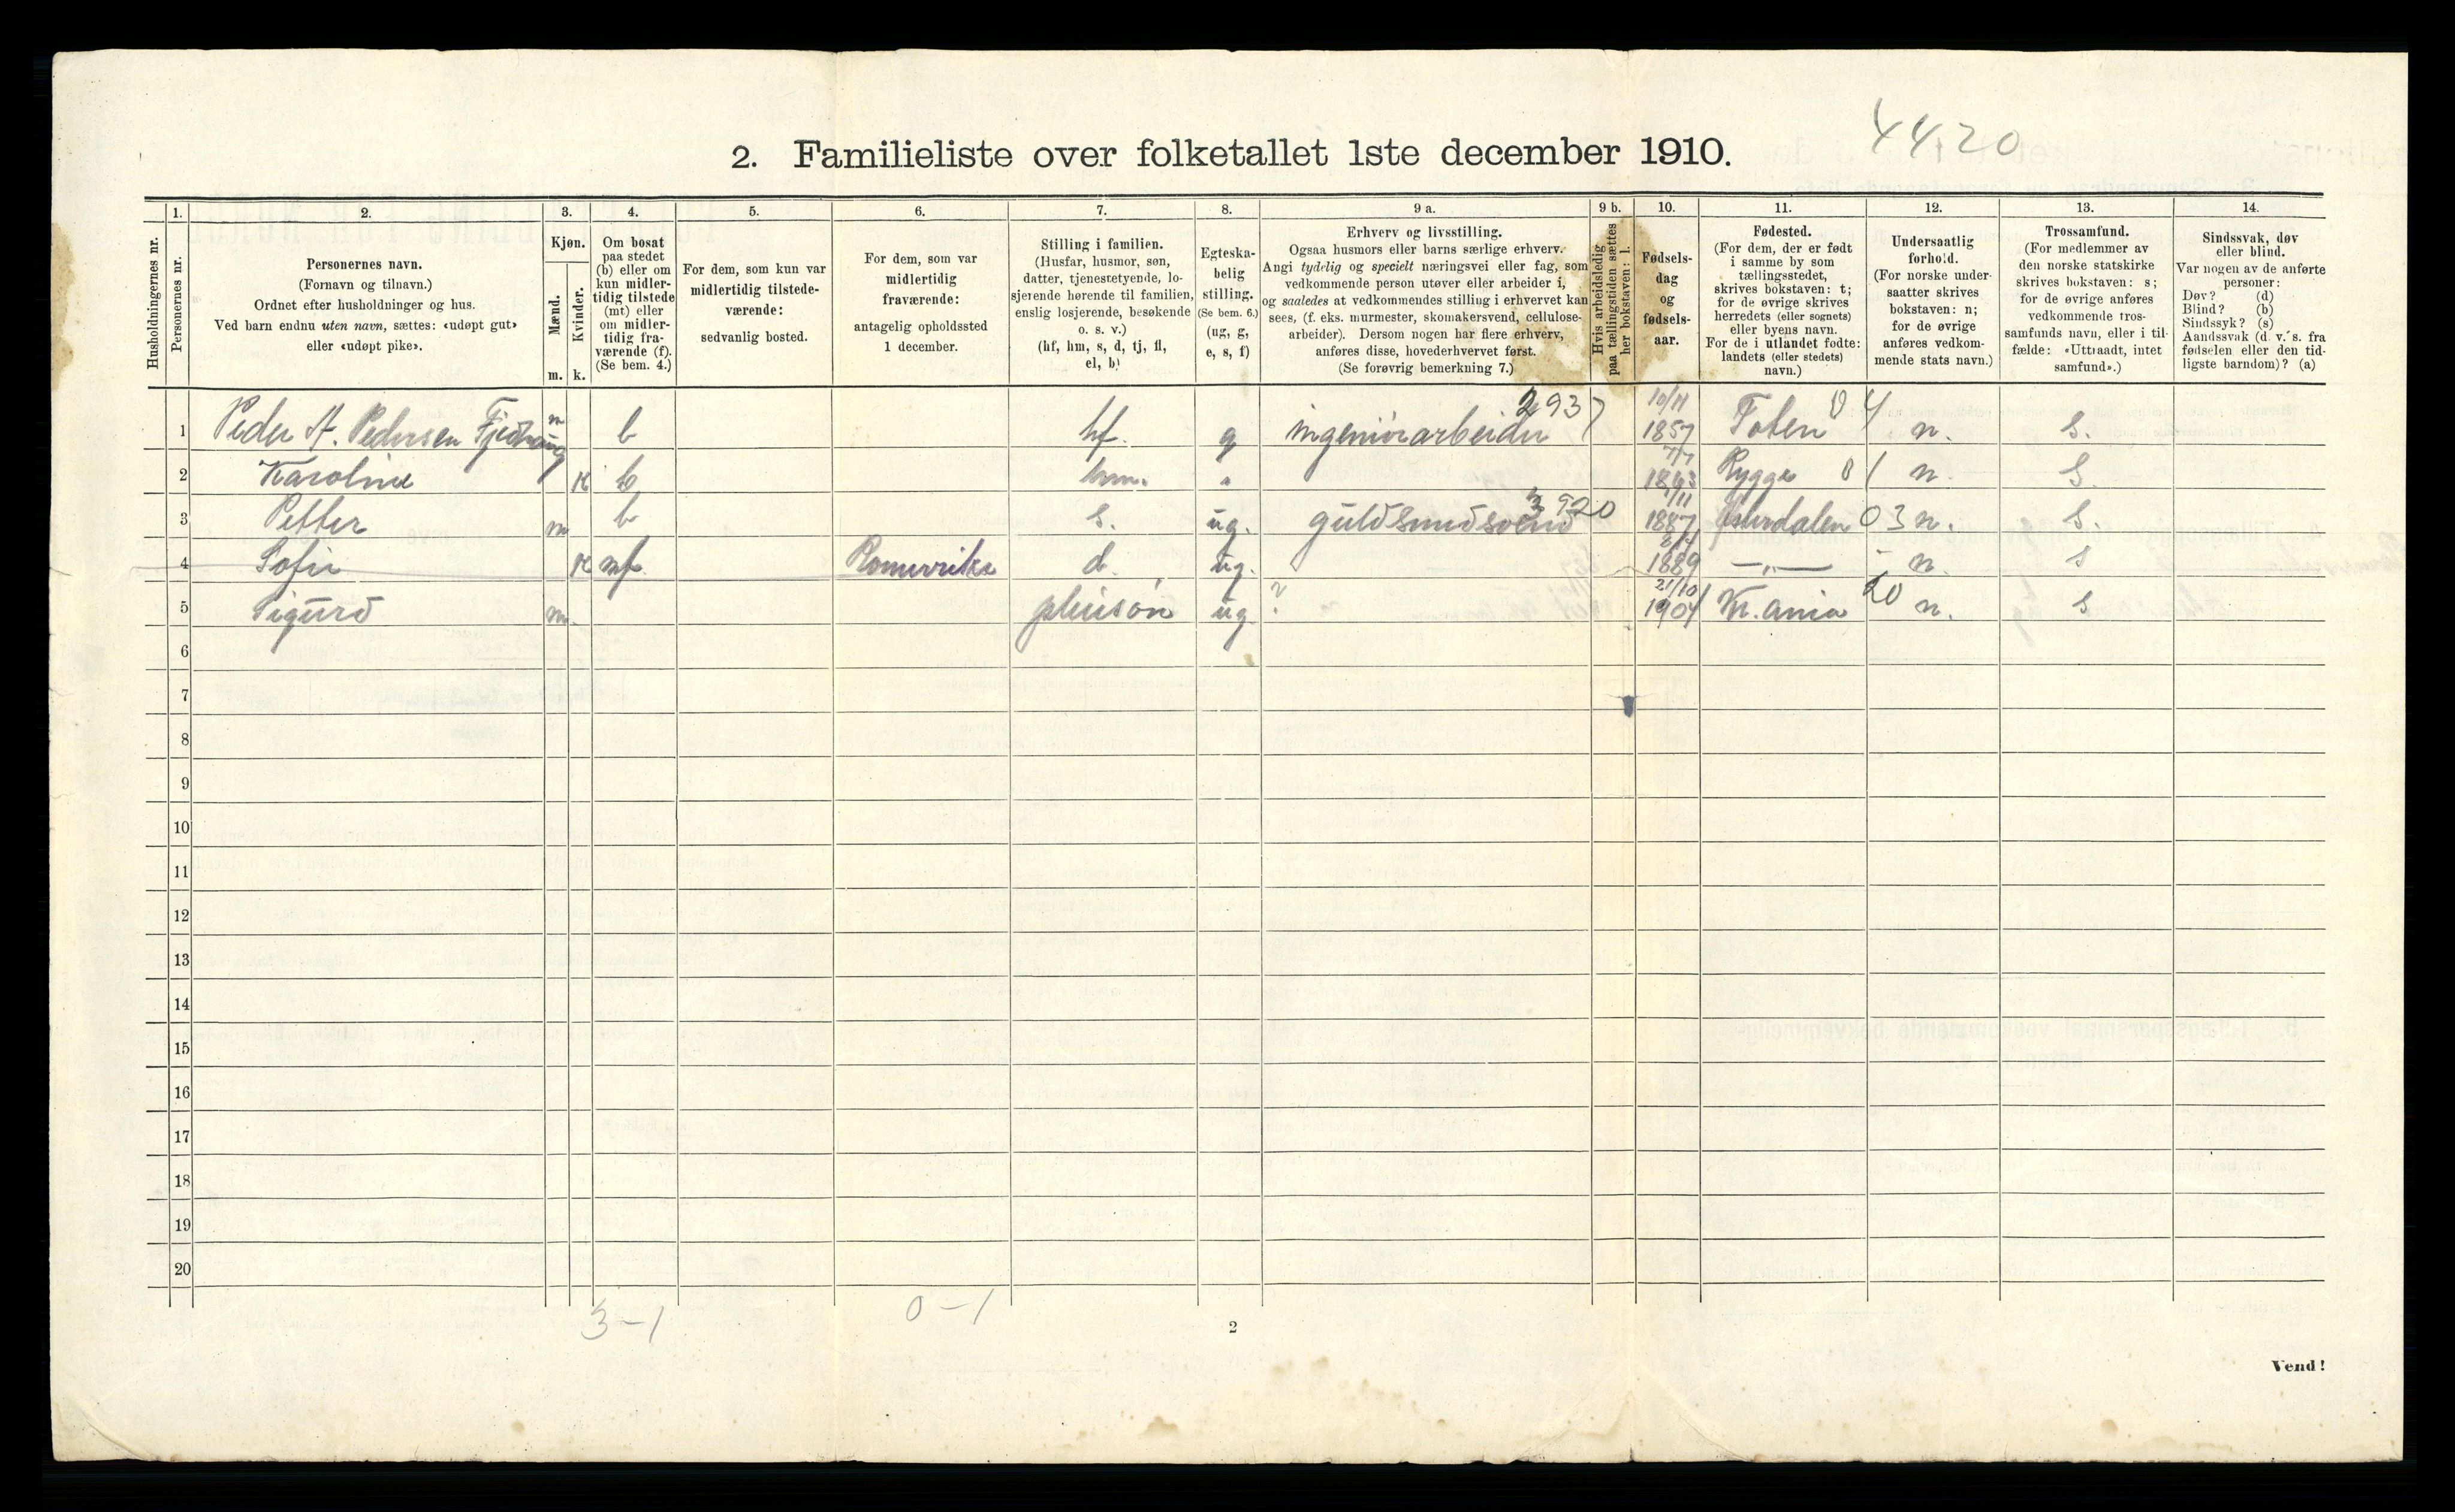 44.20
2. Familieliste over folketallet 1ste december 1910.
1. 2. 3. 4. 5. 6. 7. 8. 9 a. 9 b. 10. 11. 12. 13. 14.
Husholdningernes nr.
Personernes nr.
Personernes navn.
(Fornavn og tilnavn.)
Ordnet efter husholdninger og hus.
Ved barn endnu uten navn, sættes: «udøpt gut»
eller «udøpt pike».
Kjøn.
Mænd.
m.
Kvinder.
k.
Om bosat
paa stedet
(b) eller om
kun midler-
tidig tilstede
(mt) eller
om midler-
tidig fra-
værende (f).
(Se bem. 4.)
For dem, som kun var
midlertidig tilstede-
værende:
sedvanlig bosted.
For dem, som var
midlertidig
fraværende:
antagelig opholdssted
1 december.
Stilling i familien.
(Husfar, husmor, søn,
datter, tjenestetyende, lo-
sjerende hørende til familien,
enslig losjerende, besøkende
o. s. v.)
(hf, hm, s, d, tj, fl,
el, b)
Egteska-
belig
stilling.
(Se bem. 6.)
(ug, g,
e, s, f)
Erhverv og livsstilling.
Ogsaa husmors eller barns særlige erhverv.
Angi tydelig og specielt næringsvei eller fag, som
vedkommende person utøver eller arbeider i,
og saaledes at vedkommendes stilling i erhvervet kan
sees, (f. eks. murmester, skomakersvend, cellulose-
arbeider). Dersom nogen har flere erhverv,
anføres disse, hovederhvervet først.
(Se forøvrig bemerkning 7.)
Hvis arbeidsledig
paa tællingstiden sættes
her bokstaven: l.
Fødsels-
dag
og
fødsels-
aar.
Fødested.
(For dem, der er født
i samme by som
tællingsstedet,
skrives bokstaven: t;
for de øvrige skrives
herredets (eller sognets)
eller byens navn.
For de i utlandet fødte:
landets (eller stedets)
navn.)
Undersaatlig
forhold.
(For norske under-
saatter skrives
bokstaven: n;
for de øvrige
anføres vedkom-
mende stats navn.)
Trossamfund.
(For medlemmer av
den norske statskirke
skrives bokstaven: s;
for de øvrige anføres
vedkommende tros-
samfunds navn, eller i til-
fælde: «Uttraadt, intet
samfund».)
Sindssvak, døv
eller blind.
Var nogen av de anførte
personer:
Døv? (d)
Blind? (b)
Sindssyk? (s)
Aandssvak (d. v. s. fra
fødselen eller den tid-
ligste barndom)? (a)
1 Peder A. Pedersen Fjedhaug m b hf. g ingeniørarbeider 2937 10/11 1857 Toten 04 n. s.
2 Karoline K b hm. " 1863 Rygge 01 n. S.
3 Petter m b s. ug. guldsmedsvend 3920 1/11 1887 Østerdalen 03 n. S.
4 Sofie K mf Romerrike d. ug. 1889 —„— - n. s
5 Sigurd m. pleiesøn ug ? 21/10 1904 Kr.ania 20 n. s
6
7
8
9
10
11
12
13
14
15
16
17
18
19
20
3-1 0-1
2
Vend!